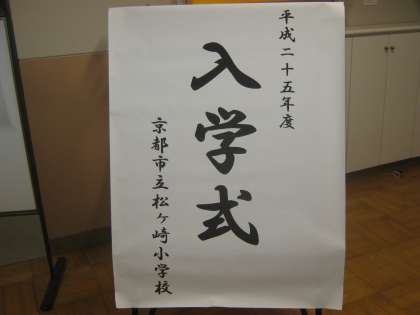 平成二十五年度
入学式
京都市立松ヶ崎小学校